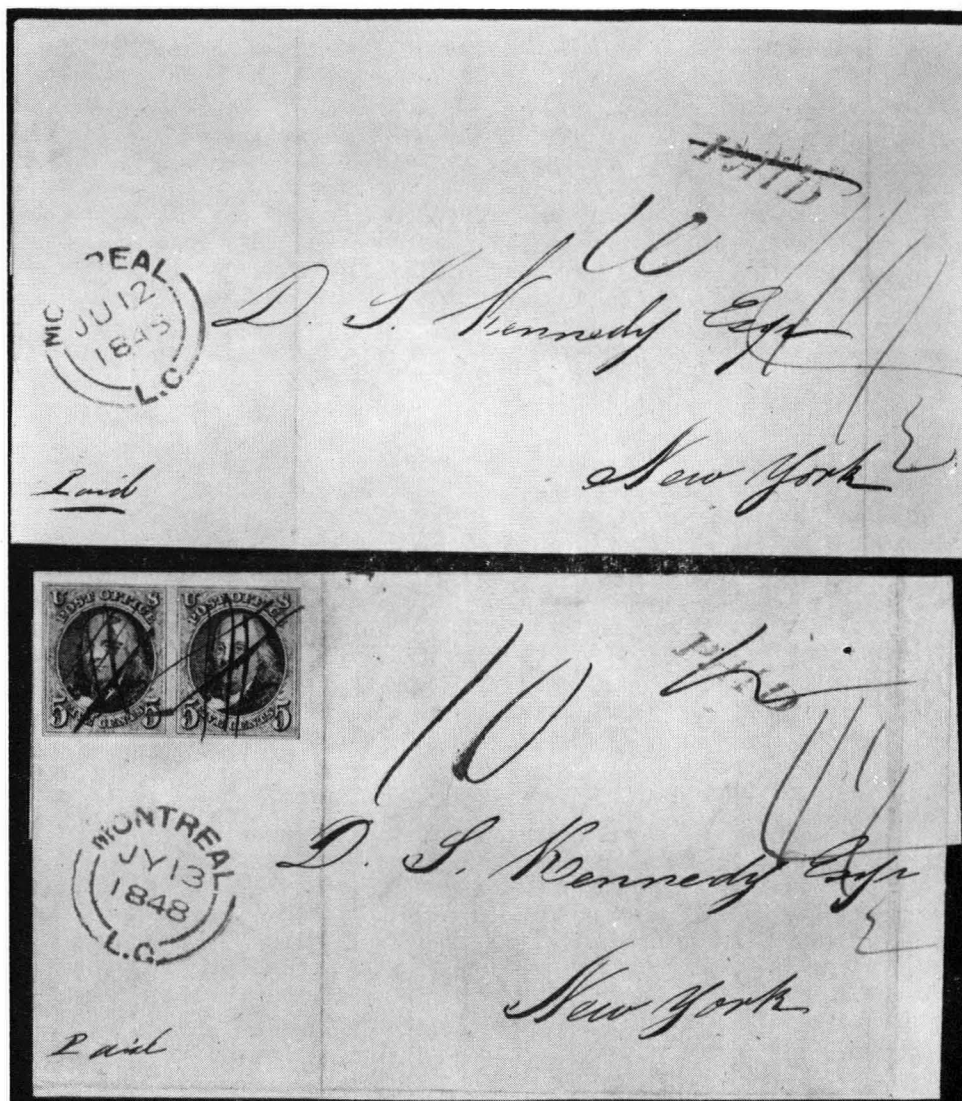 PAID
10
MONTREAL
JU 12
1848
L.C.
D. S. Kennedy Esqr
New York
Paid
U S
POST OFFICE
5 FIVE CENTS 5
U S
POST OFFICE
5 FIVE CENTS 5
10
PAID
MONTREAL
JY 13
1848
L.C.
D. S. Kennedy Esqr
New York
Paid